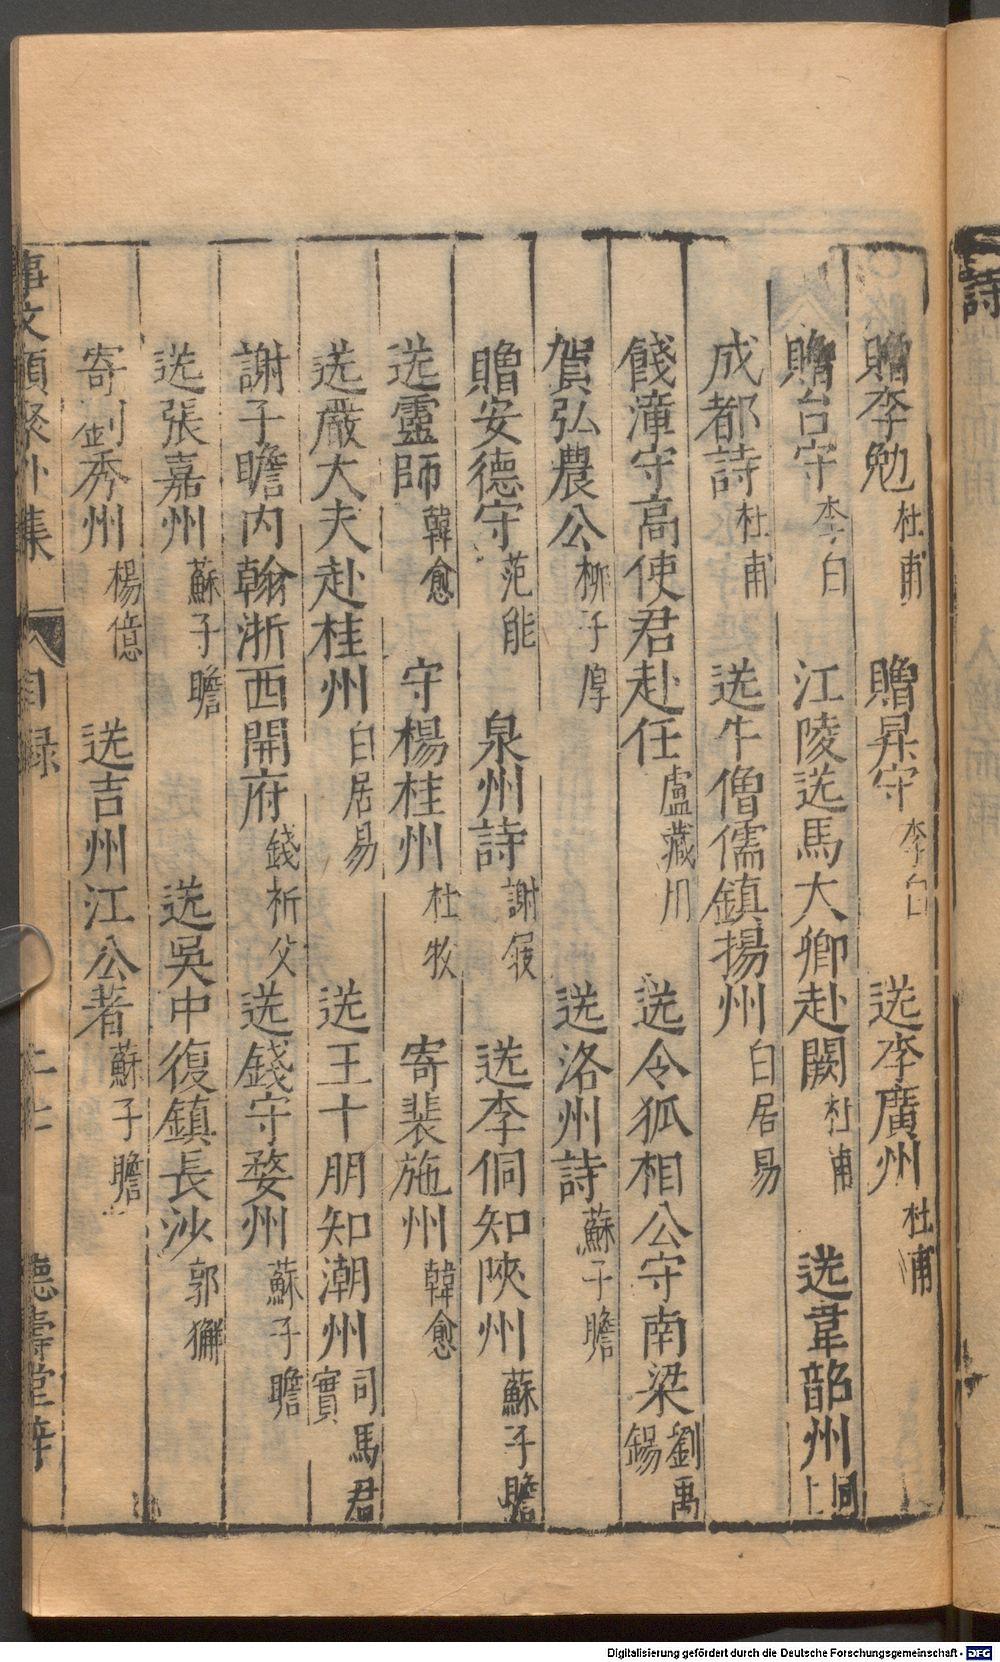 贈李勉 杜甫 贈昇守 李白 送李廣州 杜甫
贈台守 李白 江陵送馬大卿赴闕 杜甫 送韋韶州 同上
成都詩 杜甫 送牛僧儒鎮揚州 白居易
餞漳守高使君赴任 盧藏用 送令狐相公守南梁 劉禹錫
賀弘農公 柳子厚 送洛州詩 蘇子瞻
贈安德守 范能 泉州詩 謝履 送李侗知陜州 蘇子瞻
送靈師 韓愈 守楊桂州 杜牧 寄裴施州 韓愈
送嚴大夫赴桂州 白居易 送王十朋知潮州 司馬君實
謝子瞻內翰浙西開府 錢祈父 送錢守婺州 蘇子瞻
送張嘉州 蘇子瞻 送吳中復鎮長沙 郭獬
寄劍秀州 楊億 送吉州江公著 蘇子瞻
事文類聚外集 目錄 德壽堂梓
詩
Digitalisierung gefördert durch die Deutsche Forschungsgemeinschaft - DFG